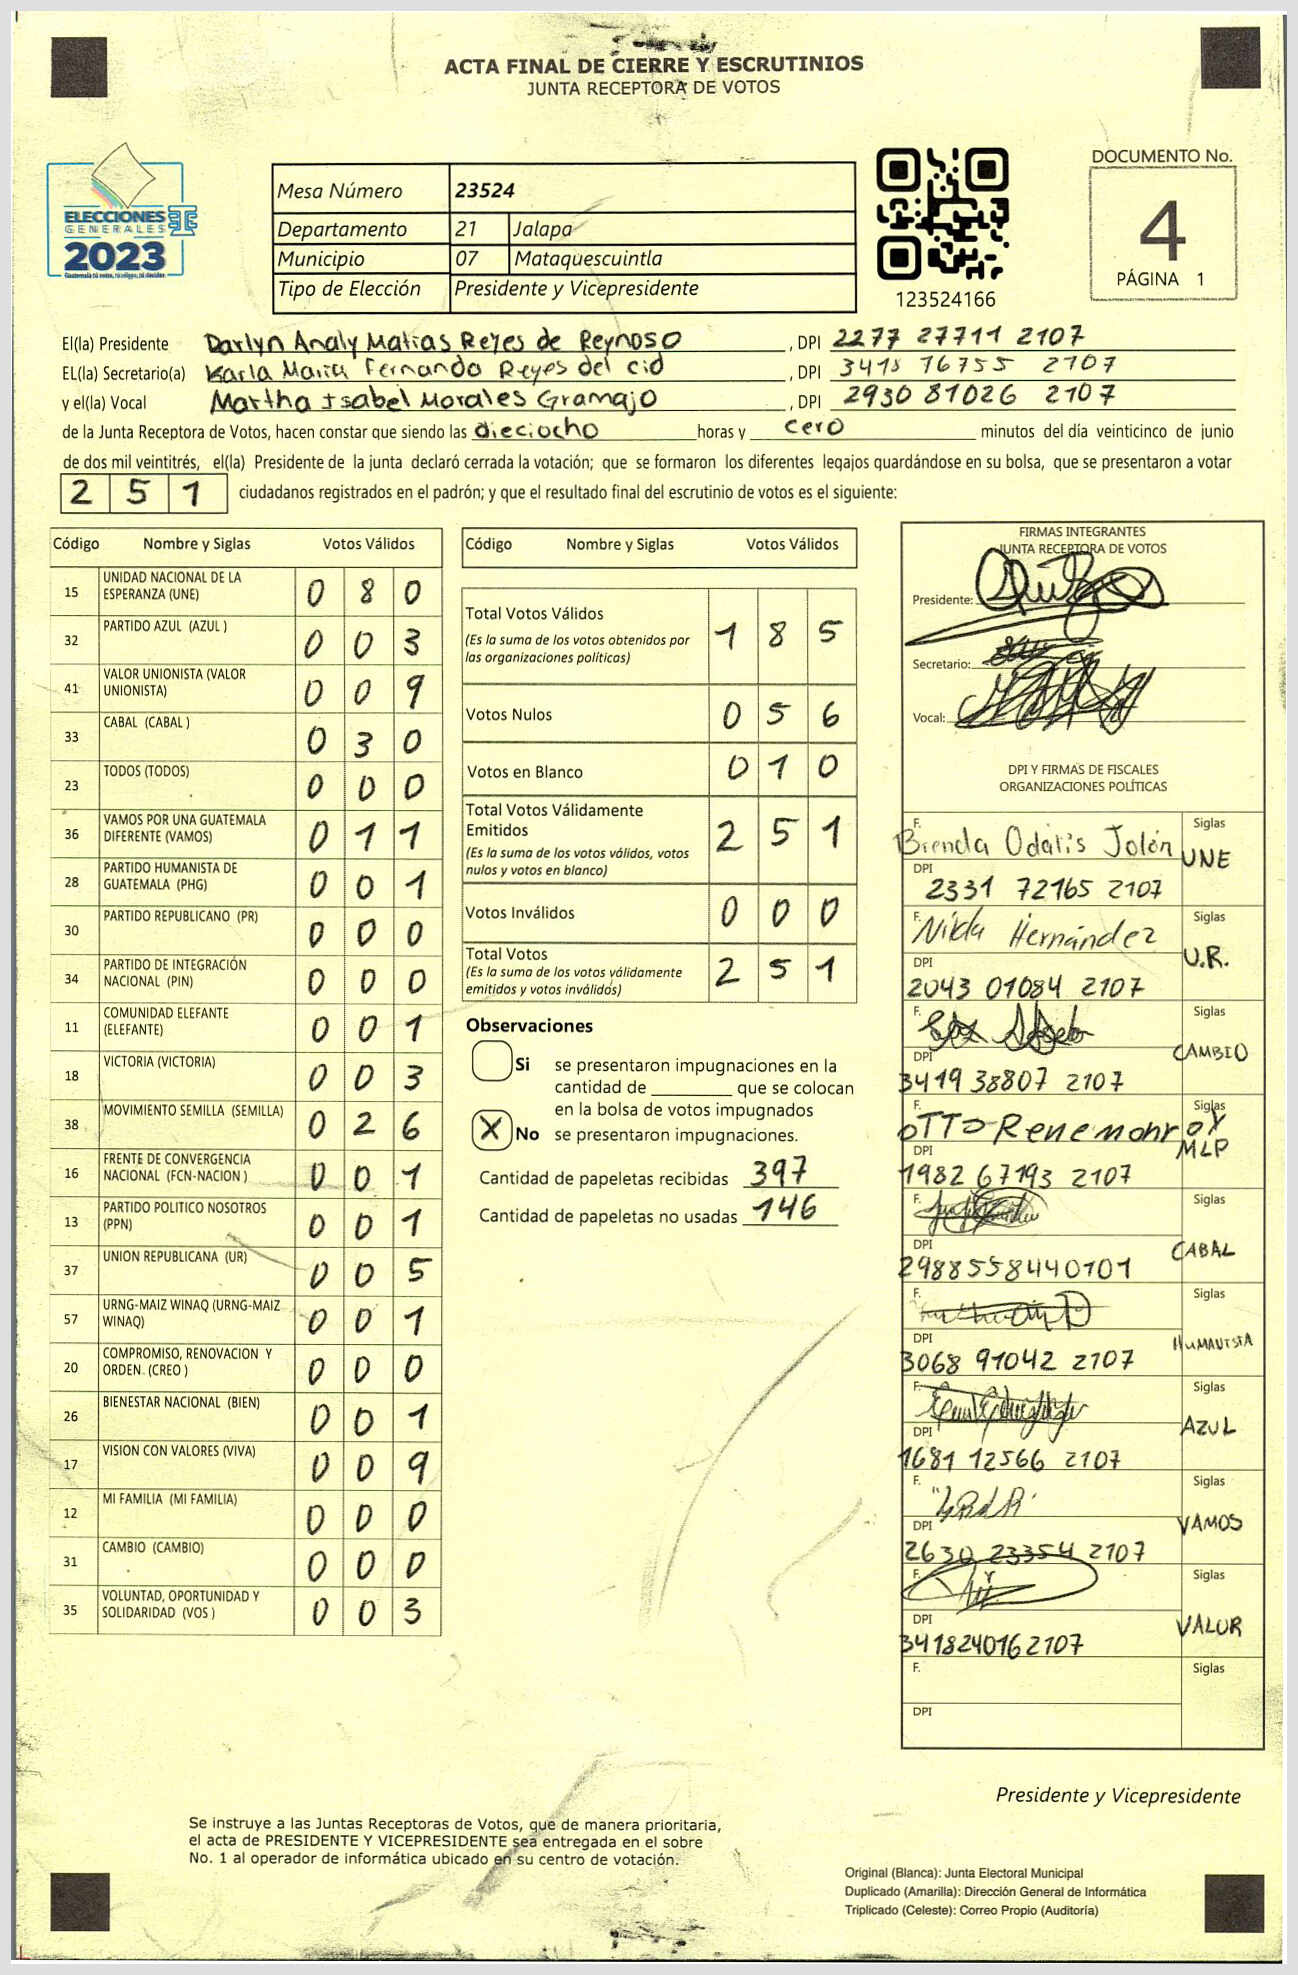 ACTA FINAL DE CIERRE Y ESCRUTINIOS
JUNTA RECEPTORA DE VOTOS
ELECCIONES
GENERALES
2023
Guatemala tú votas, tú eliges, tú decides
Mesa Número 23524
Departamento 21 Jalapa
Municipio 07 Mataquescuintla
Tipo de Elección Presidente y Vicepresidente
123524166
DOCUMENTO No.
4
PÁGINA 1
El(la) Presidente Darlyn Analy Matias Reyes de Reynoso, DPI 2277 27711 2107
EL(la) Secretario(a) Karla Maria Fernanda Reyes del cid, DPI 3418 76755 2107
y el(la) Vocal Martha Isabel Morales Gramajo, DPI 2930 81026 2107
de la Junta Receptora de Votos, hacen constar que siendo las dieciocho horas y cero minutos del día veinticinco de junio
de dos mil veintitrés, el(la) Presidente de la junta declaró cerrada la votación; que se formaron los diferentes legajos guardándose en su bolsa, que se presentaron a votar
2 5 1 ciudadanos registrados en el padrón; y que el resultado final del escrutinio de votos es el siguiente:
Código Nombre y Siglas Votos Válidos
15 UNIDAD NACIONAL DE LA ESPERANZA (UNE) 0 8 0
32 PARTIDO AZUL (AZUL ) 0 0 3
41 VALOR UNIONISTA (VALOR UNIONISTA) 0 0 9
33 CABAL (CABAL ) 0 3 0
23 TODOS (TODOS) 0 0 0
36 VAMOS POR UNA GUATEMALA DIFERENTE (VAMOS) 0 1 1
28 PARTIDO HUMANISTA DE GUATEMALA (PHG) 0 0 1
30 PARTIDO REPUBLICANO (PR) 0 0 0
34 PARTIDO DE INTEGRACIÓN NACIONAL (PIN) 0 0 0
11 COMUNIDAD ELEFANTE (ELEFANTE) 0 0 1
18 VICTORIA (VICTORIA) 0 0 3
38 MOVIMIENTO SEMILLA (SEMILLA) 0 2 6
16 FRENTE DE CONVERGENCIA NACIONAL (FCN-NACION ) 0 0 1
13 PARTIDO POLITICO NOSOTROS (PPN) 0 0 1
37 UNION REPUBLICANA (UR) 0 0 5
57 URNG-MAIZ WINAQ (URNG-MAIZ WINAQ) 0 0 1
20 COMPROMISO, RENOVACION Y ORDEN. (CREO ) 0 0 0
26 BIENESTAR NACIONAL (BIEN) 0 0 1
17 VISION CON VALORES (VIVA) 0 0 9
12 MI FAMILIA (MI FAMILIA) 0 0 0
31 CAMBIO (CAMBIO) 0 0 0
35 VOLUNTAD, OPORTUNIDAD Y SOLIDARIDAD (VOS ) 0 0 3
Código Nombre y Siglas Votos Válidos
Total Votos Válidos 1 8 5
(Es la suma de los votos obtenidos por
las organizaciones políticas)
Votos Nulos 0 5 6
Votos en Blanco 0 1 0
Total Votos Válidamente
Emitidos 2 5 1
(Es la suma de los votos válidos, votos
nulos y votos en blanco)
Votos Inválidos 0 0 0
Total Votos 2 5 1
(Es la suma de los votos válidamente
emitidos y votos inválidos)
Observaciones
Si se presentaron impugnaciones en la
cantidad de ________ que se colocan
en la bolsa de votos impugnados
X No se presentaron impugnaciones.
Cantidad de papeletas recibidas 397
Cantidad de papeletas no usadas 146
FIRMAS INTEGRANTES
JUNTA RECEPTORA DE VOTOS
Presidente:
Secretario:
Vocal:
DPI Y FIRMAS DE FISCALES
ORGANIZACIONES POLÍTICAS
F. Brenda Odalis Jolón Siglas UNE
DPI 2331 72165 2107
F. Nilda Hernández Siglas U.R.
DPI 2043 01084 2107
F. Siglas CAMBIO
DPI 3419 38807 2107
F. OTTO Rene monroy Siglas MLP
DPI 1982 67193 2107
F. Siglas CABAL
DPI 2988558440101
F. Siglas HUMANISTA
DPI 3068 91042 2107
F. Siglas AZUL
DPI 1681 12566 2107
F. Siglas VAMOS
DPI 2630 23354 2107
F. Siglas VALUR
DPI 3418240162107
F. Siglas
DPI
Presidente y Vicepresidente
Se instruye a las Juntas Receptoras de Votos, que de manera prioritaria,
el acta de PRESIDENTE Y VICEPRESIDENTE sea entregada en el sobre
No. 1 al operador de informática ubicado en su centro de votación.
Original (Blanca): Junta Electoral Municipal
Duplicado (Amarilla): Dirección General de Informática
Triplicado (Celeste): Correo Propio (Auditoría)